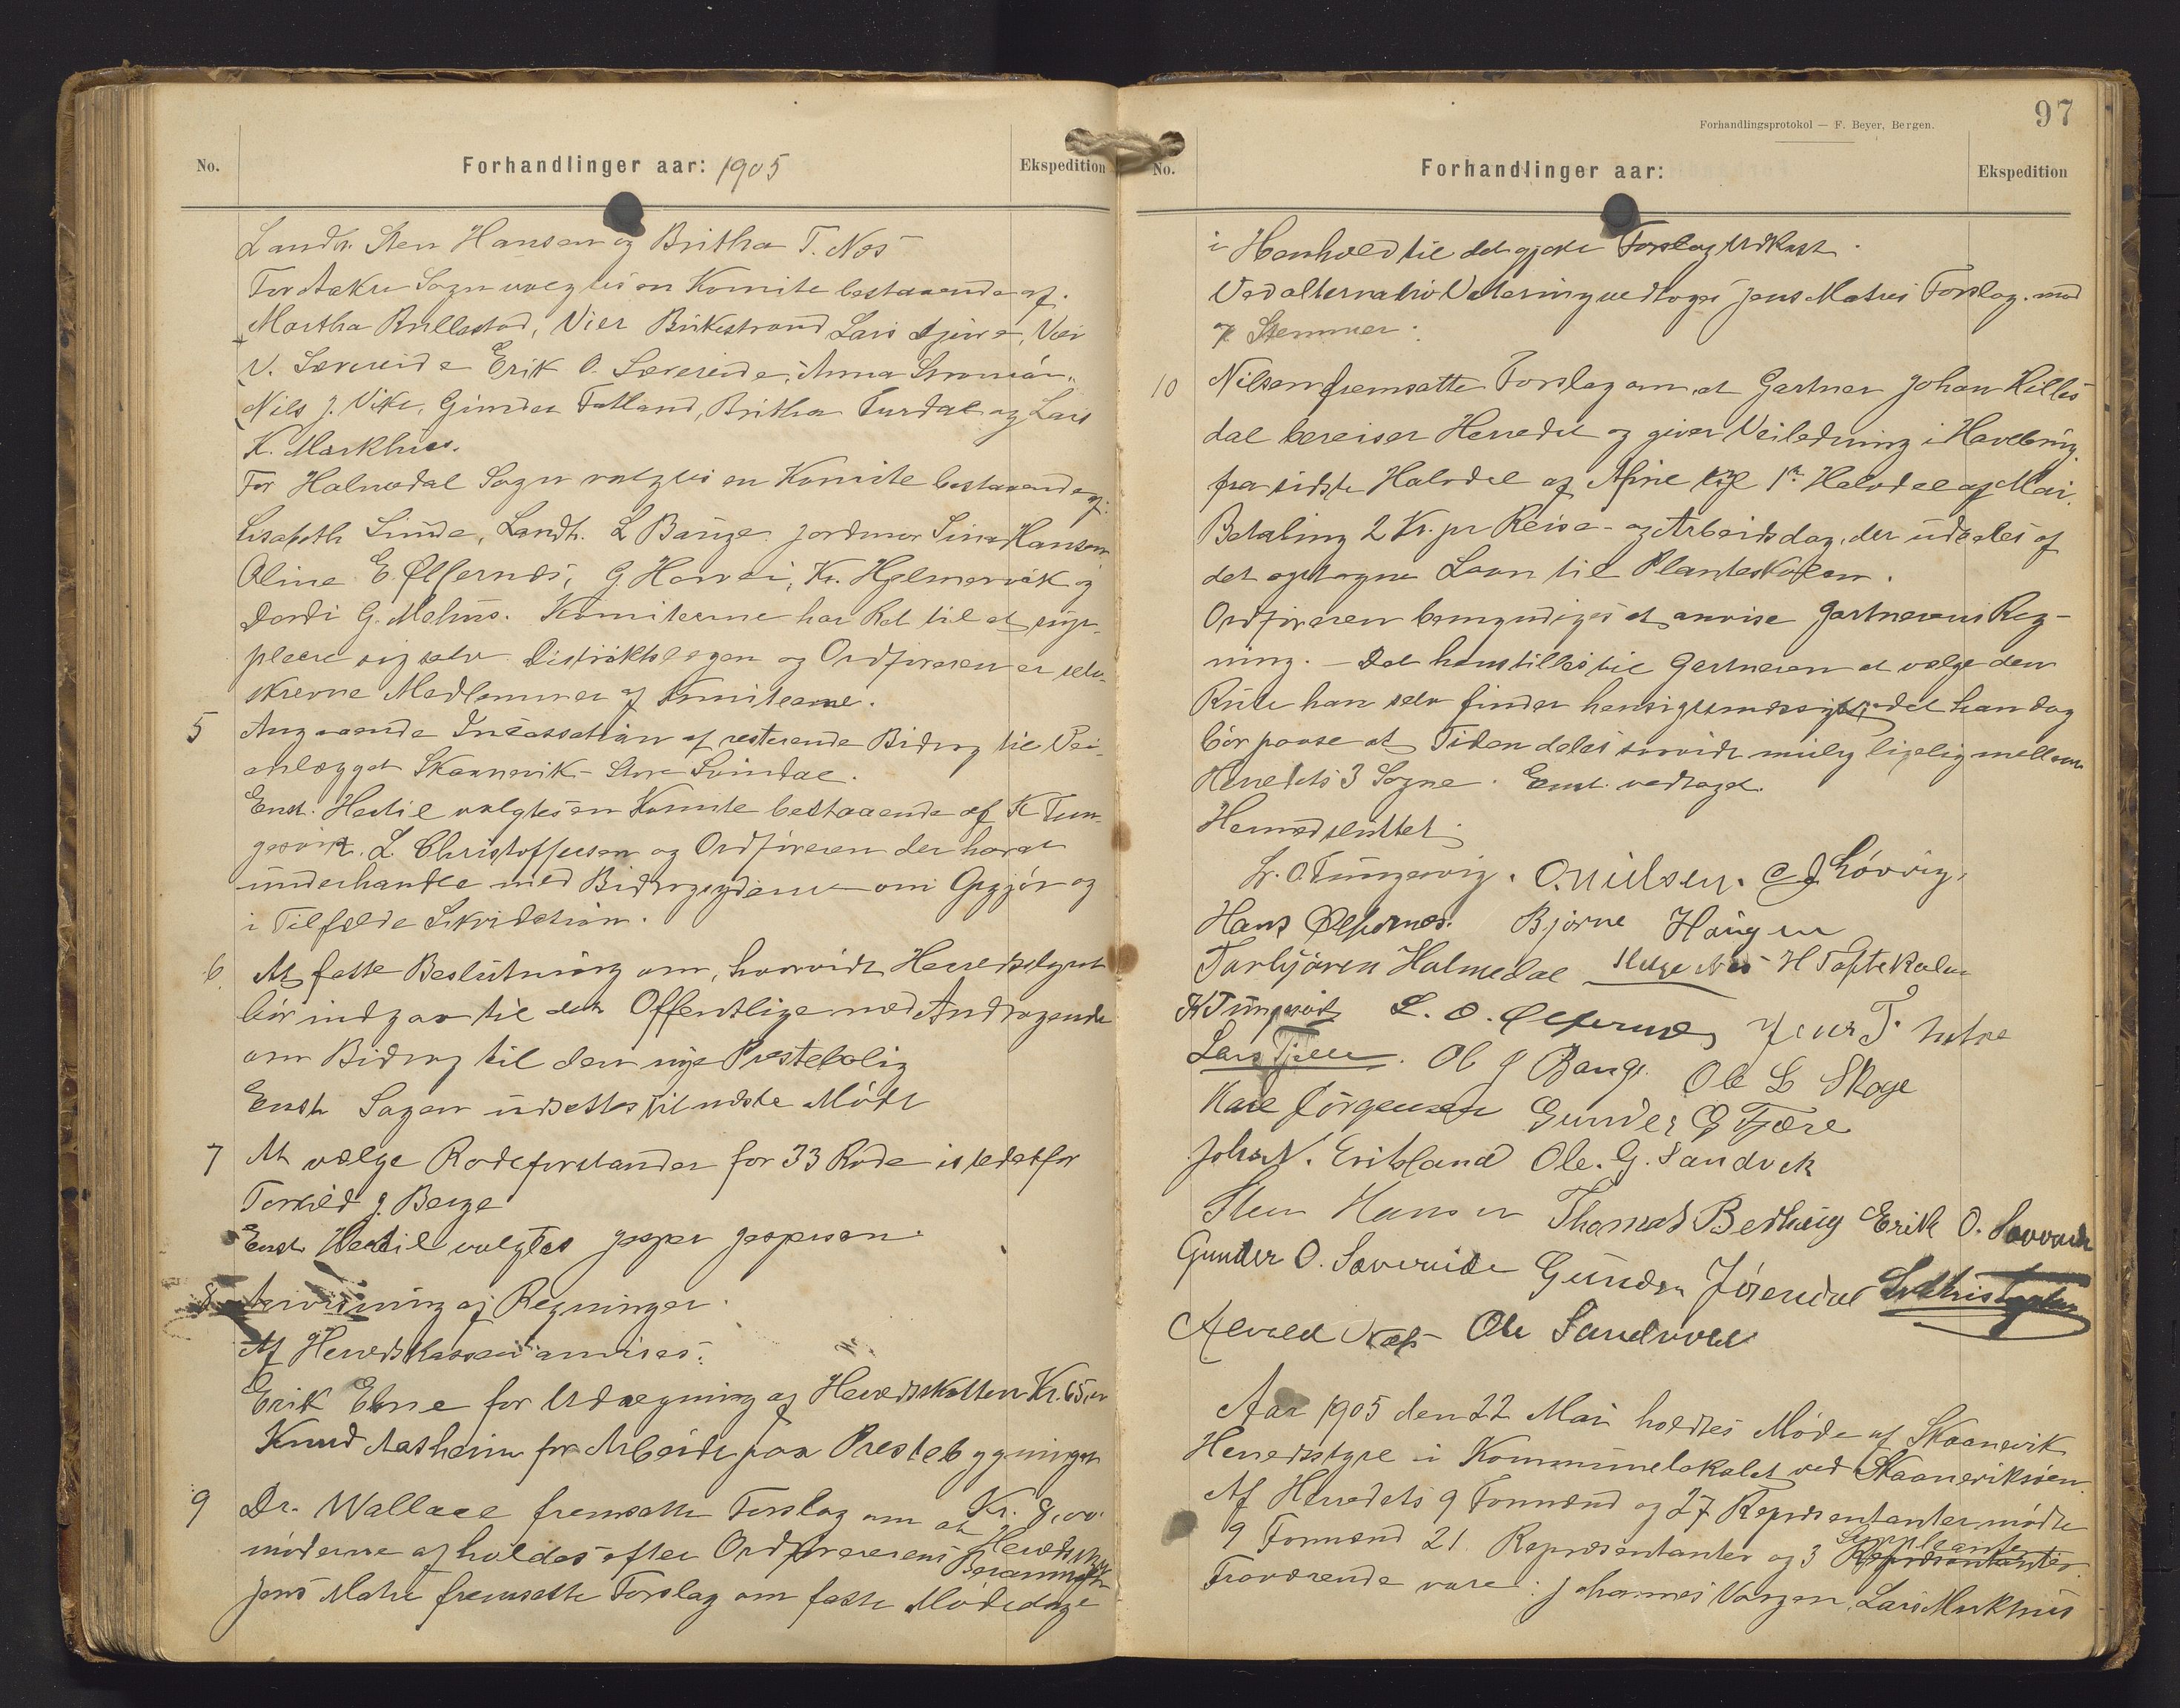 No.
Forhandlinger aar: 1905
Ekspedition
Landh. Sten Hansen og Britha T. Næs
For Aakre Sogn valgtes en Komite bestaaende af.
Martha Rullestad, Vier Birkestrand Lars Tjerre, Vier
V. Sævereide Erik O. Sævereide, Anna
Nils J. Vike, Gunder Fatland, Britha Turdal og Lars
K. Markhus.
For Halnædal Sogn valgtes en Komite bestaaende af:
Lisabeth Sunde, Landh. L Bauge Jordmor Sina Hansen
Oline E. Ølfernæs, G. Horvei, Kr. Hjelmervik og
Dordi G. Mehus. Komiteerne har Ret til at sup-
pleere sig selv. Distriktslægen og Ordføreren er selv-
skrevne Medlemmer af Komiteerne.
5 Angaaende Incassation af resterende Bidrag til Vei-
anlægget Skaanevik - Store Svindal.
Enst. Hertil valgtes en Komite bestaaende af K Tun-
gesvik, L. Christoffersen og Ordføreren der har at
underhandle med Bidragsyderne om Opgjør og
i Tilfælde Likvidation.
6. At fatte Beslutning om, hvorvidt Herredsstyret
bør indgaa til det Offentlige med Andragende
om Bidrag til den nye Prestebolig
Enst. Sagen udsættes til næste Møde
7 At vælge Rodeforstander for 33 Rode istedetfor
Torkild J. Berge
Enst. Hertil valgtes Jesper Jespersen.
8 Anvisning af Regninger.
Af Herredskassen anvises:
Erik Ebne for Udregning af Herredsskatten Kr. 65,00
Knud Aasheim for Arbeide paa Prestebygningen
Kr. 8,00.
9 Dr. Wallace fremsatte Forslag om at Herredsstyre
møderne afholdes efter Ordførerens Berammelse
Jens Matre fremsatte Forslag om faste Mødedage
97
Forhandlingsprotokol — F. Beyer, Bergen.
No.
Forhandlinger aar:
Ekspedition
i Henhold til det gjorte Forslag Udkast.
Ved alternativ Votering vedtoges Jens Matres Forslag mod
7 Stemmer.
10 Nilsen fremsatte Forslag om, at Gartner Johan Hilles
dal bereiser Herredet og giver Veiledning i Havebrug,
fra sidste Halvdel af April til 1ste Halvdel af Mai.
Betaling 2 Kr. pr Reise- og Arbeidsdag, der udredes af
det optagne Laan til Planteskolen.
Ordføreren bemyndiges at anvise Gartnerens Reg-
ning. - Det henstilles til Gartneren at vælge den
Rute han selv finder hensigtsmæssigst, idet han dog
bør passe at Tiden deles saavidt mulig ligelig mellem
Herredets 3 Sogne. Enst. vedtaget.
Hermed sluttet.
Kr. O. Tungesvig. O. Nielsen. Løvvig,
Hans Ølfernes. Bjørne Haugen
Torbjøren Halmedal Helge Næs H Toftekalv
K Tungesvik L. O. Ølfernæs Jens T. Matre
Lars Tjerre. Ol J Bauge. Ole L Skaje
Karl Jørgensen Gunder G Fjære
Johs N. Eritsland Ole. G. Sandvik
Sten Hansen Thomas Bethuig Erik O. Sævereide
Gunder O. Sævereide Gunder Jørendal L. Christoffersen
Alvald Næs Ole Sandvold
Aar 1905 den 22 Mai holdtes Møde af Skaanevik
Herredsstyre i Kommunelokalet ved Skaaneviksøen.
Af Herredets 9 Formænd og 27 Repræsentanter mødte
9 Formænd 21 Repræsentanter og 3 Repræsentanter Supleanter.
Fraværende vare: Johannes Vangen, Lars Markhus